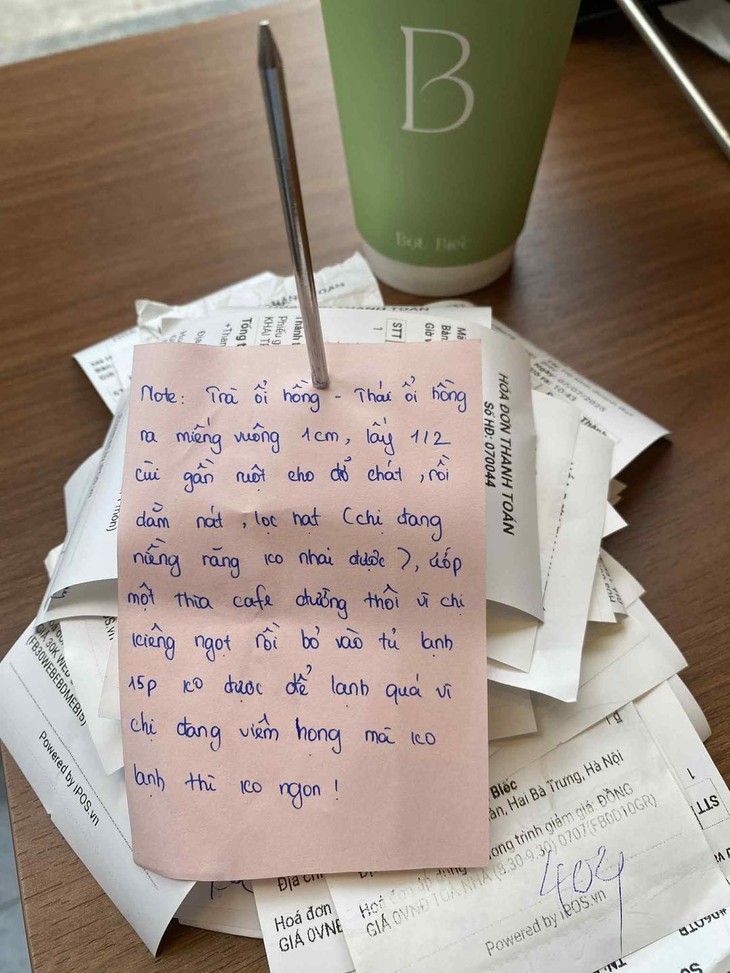 B
Bọt Biếc
Note: Trà ổi hồng - Thái ổi hồng
ra miếng vuông 1cm, lấy 1/2
cùi gần ruột cho đỡ chát, rồi
dằm nát, lọc hạt (chị đang
niềng răng ko nhai được), ướp
một thìa cafe đường thôi vì chị
kiêng ngọt rồi bỏ vào tủ lạnh
15p ko được để lạnh quá vì
chị đang viêm họng mà ko
lạnh thì ko ngon!
HÓA ĐƠN THANH TOÁN
Số HĐ: 070044
STT
1
Tổng t
+Than
(FB30WEBEBDMEB1S)
Powered by iPOS.vn
Biếc
Hai Bà Trưng, Hà Nội
trình giảm giá: ĐỒNG
GIÁ 0VNĐ TOÀ NHÀ (8.30-9.30) 0707(FBDD10GR)
404
Powered by iPOS.vn
Địa chỉ
Hoá đơn
GIÁ 0VNĐ
STT
1